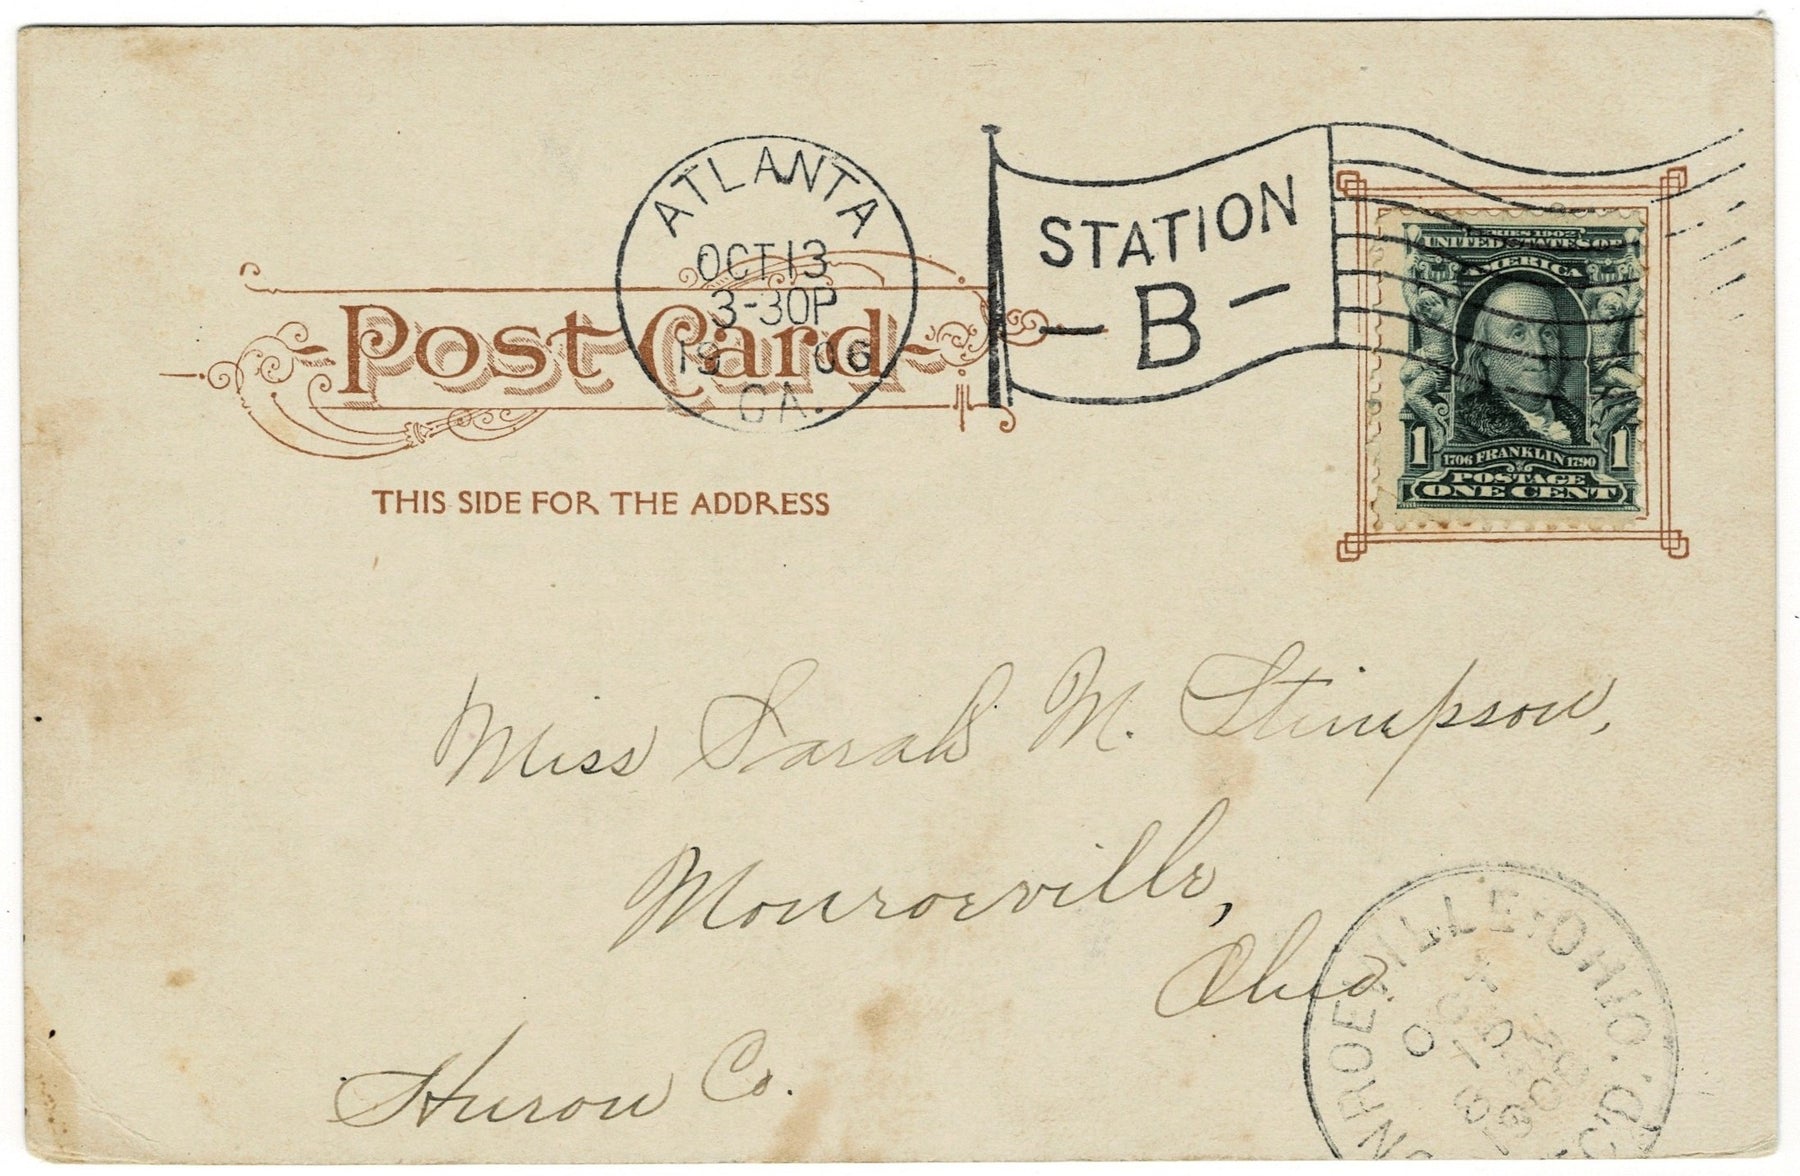 ATLANTA
OCT 13
3-30P
19 06
GA.
STATION
- B -
SERIES 1902
UNITED STATES OF
AMERICA
1 1
1706 FRANKLIN 1790
POSTAGE
ONE CENT
Post Card
THIS SIDE FOR THE ADDRESS
Miss Sarah M. Stimpson,
Monroeville,
Ohio
Huron Co.
MONROEVILLE, OHIO.
OCT
1906
REC'D.